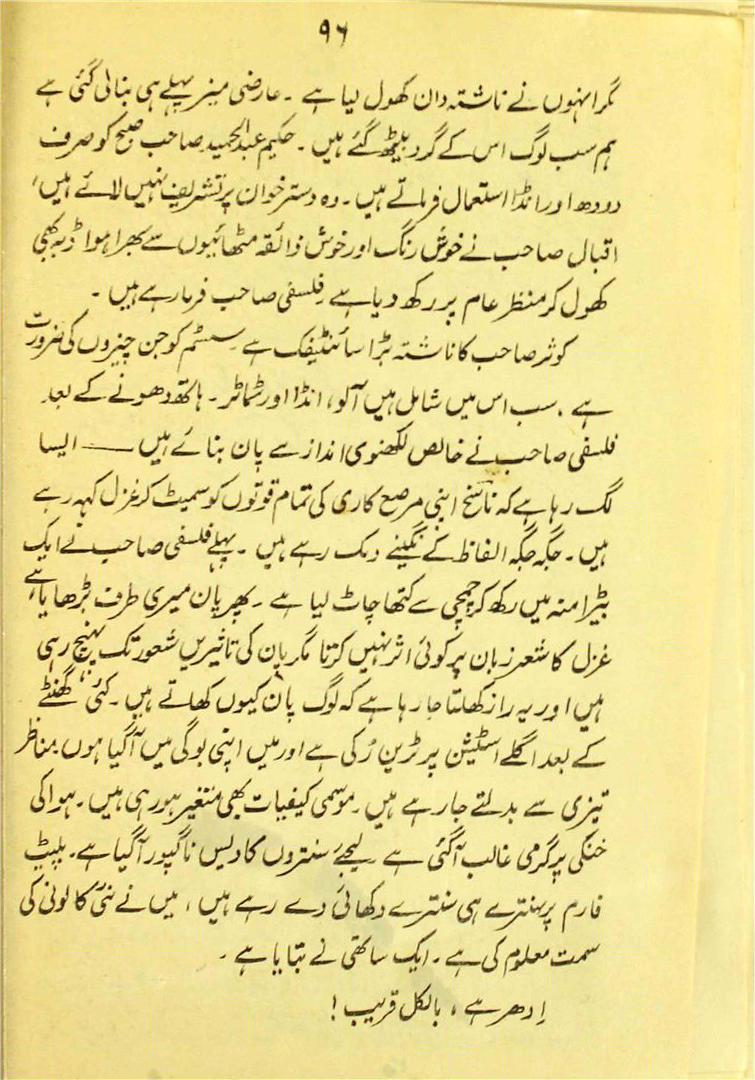 ۹۶
مگر انہوں نے ناشتہ دان کھول لیا ہے ۔ عارضی میز پہلے ہی بنالی گئی ہے
ہم سب لوگ اس کے گرد بیٹھ گئے ہیں ۔ حکیم عبدالحمید صاحب صبح کو صرف
دودھ اور انڈا استعمال فرماتے ہیں ۔ وہ دسترخوان پر تشریف نہیں لائے ہیں ،
اقبال صاحب نے خوش رنگ اور خوش ذائقہ مٹھائیوں سے بھرا ہوا ڈبہ بھی
کھول کر منظر عام پر رکھ دیا ہے فلسفی صاحب فرما رہے ہیں ۔
کوثر صاحب کا ناشتہ بڑا سائنٹیفک ہے ۔ سسٹم کو جن چیزوں کی ضرورت
ہے ، سب اس میں شامل ہیں آلو ، انڈا اور ٹماٹر ۔ ہاتھ دھونے کے بعد
فلسفی صاحب نے خالص لکھنوی انداز سے پان بنائے ہیں —— ایسا
لگ رہا ہے کہ ناسخ اپنی مرصع کاری کی تمام قوتوں کو سمیٹ کر غزل کہہ رہے
ہیں ۔ جگہ جگہ الفاظ کے نگینے دمک رہے ہیں ۔ پہلے فلسفی صاحب نے ایک
بیڑا منہ میں رکھ کر چمچی سے کتھا چاٹ لیا ہے ۔ پھر پان میری طرف بڑھایا ہے
غزل کا شعر زبان پر کوئی اثر نہیں کرتا مگر پان کی تاثیریں شعور تک پہنچ رہی
ہیں اور یہ راز کھلتا جا رہا ہے کہ لوگ پان کیوں کھاتے ہیں ۔ کئی گھنٹے
کے بعد اگلے اسٹیشن پر ٹرین رُکی ہے اور میں اپنی بوگی میں آگیا ہوں مناظر
تیزی سے بدلتے جا رہے ہیں ۔ موسمی کیفیات بھی متغیر ہو رہی ہیں ۔ ہوا کی
خنکی پر گرمی غالب آگئی ہے لیجئے سنتروں کا دیس ناگپور آگیا ہے ۔ پلیٹ
فارم پر سنترے ہی سنترے دکھائی دے رہے ہیں ، میں نے نئی کالونی کی
سمت معلوم کی ہے ۔ ایک ساتھی نے بتایا ہے ۔
اِدھر ہے ، بالکل قریب !